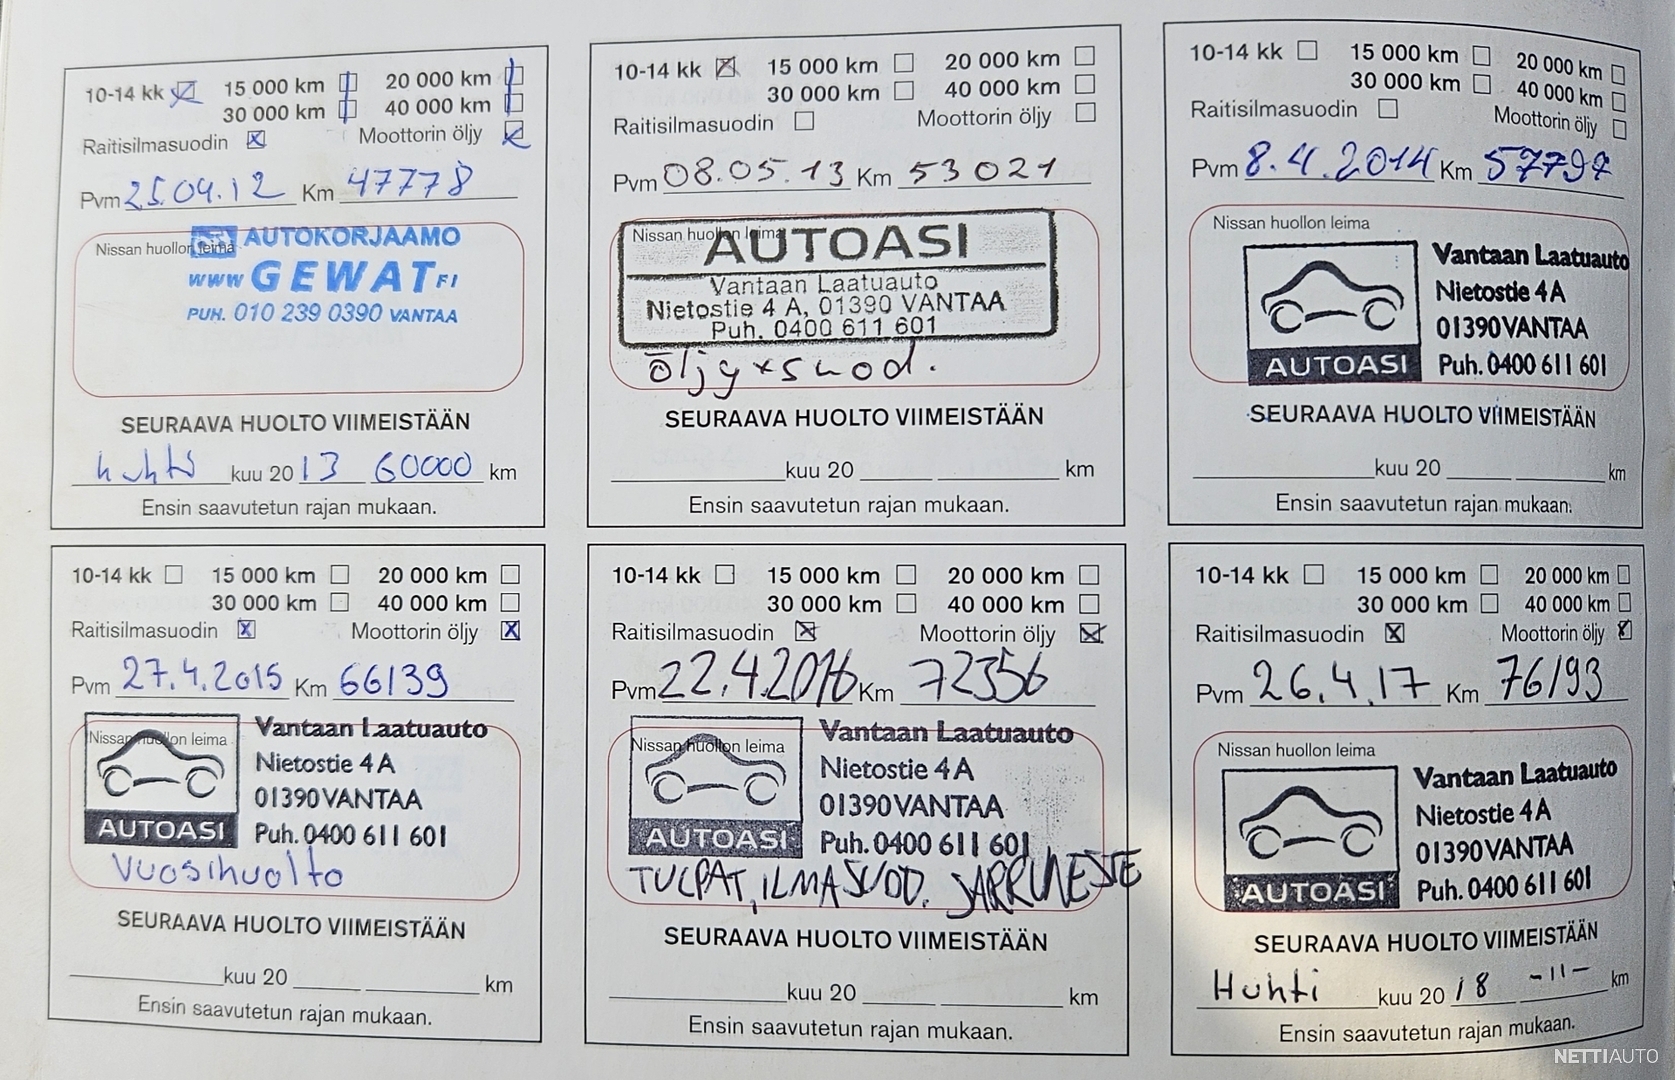 10-14 kk 15 000 km 20 000 km
30 000 km 40 000 km
Raitisilmasuodin Moottorin öljy
Pvm 25.04.12 Km 47778
Nissan huollon leima
AUTOKORJAAMO
www GEWAT FI
PUH. 010 239 0390 VANTAA
SEURAAVA HUOLTO VIIMEISTÄÄN
huhti kuu 20 13 60000 km
Ensin saavutetun rajan mukaan.
10-14 kk 15 000 km 20 000 km
30 000 km 40 000 km
Raitisilmasuodin Moottorin öljy
Pvm 08.05.13 Km 53021
Nissan huollon leima
AUTOASI
Vantaan Laatuauto
Nietostie 4 A, 01390 VANTAA
Puh. 0400 611 601
öljy+suod.
SEURAAVA HUOLTO VIIMEISTÄÄN
kuu 20 km
Ensin saavutetun rajan mukaan.
10-14 kk 15 000 km 20 000 km
30 000 km 40 000 km
Raitisilmasuodin Moottorin öljy
Pvm 8.4.2014 Km 57797
Nissan huollon leima
AUTOASI
Vantaan Laatuauto
Nietostie 4 A
01390 VANTAA
Puh. 0400 611 601
SEURAAVA HUOLTO VIIMEISTÄÄN
kuu 20 km
Ensin saavutetun rajan mukaan.
10-14 kk 15 000 km 20 000 km
30 000 km 40 000 km
Raitisilmasuodin Moottorin öljy
Pvm 27.4.2015 Km 66139
Nissan huollon leima
AUTOASI
Vantaan Laatuauto
Nietostie 4 A
01390 VANTAA
Puh. 0400 611 601
Vuosihuolto
SEURAAVA HUOLTO VIIMEISTÄÄN
kuu 20 km
Ensin saavutetun rajan mukaan.
10-14 kk 15 000 km 20 000 km
30 000 km 40 000 km
Raitisilmasuodin Moottorin öljy
Pvm 22.4.2016 Km 72356
Nissan huollon leima
AUTOASI
Vantaan Laatuauto
Nietostie 4 A
01390 VANTAA
Puh. 0400 611 601
TULPAT, ILMASUOD. JARRUNESTE
SEURAAVA HUOLTO VIIMEISTÄÄN
kuu 20 km
Ensin saavutetun rajan mukaan.
10-14 kk 15 000 km 20 000 km
30 000 km 40 000 km
Raitisilmasuodin Moottorin öljy
Pvm 26.4.17 Km 76193
Nissan huollon leima
AUTOASI
Vantaan Laatuauto
Nietostie 4 A
01390 VANTAA
Puh. 0400 611 601
SEURAAVA HUOLTO VIIMEISTÄÄN
Huhti kuu 20 18 -11- km
Ensin saavutetun rajan mukaan.
NETTIAUTO